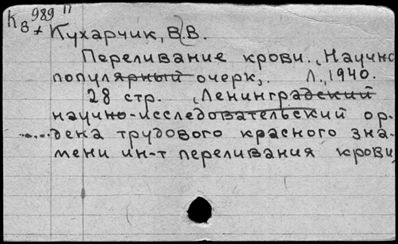 К 989
В + Кухарчик, В.В.
Переливание крови. Научно
популярный очерк, Л., 1940.
28 стр. Ленинградский
научно-исследовательский ор-
дена трудового красного зна-
мени ин-т переливания крови,